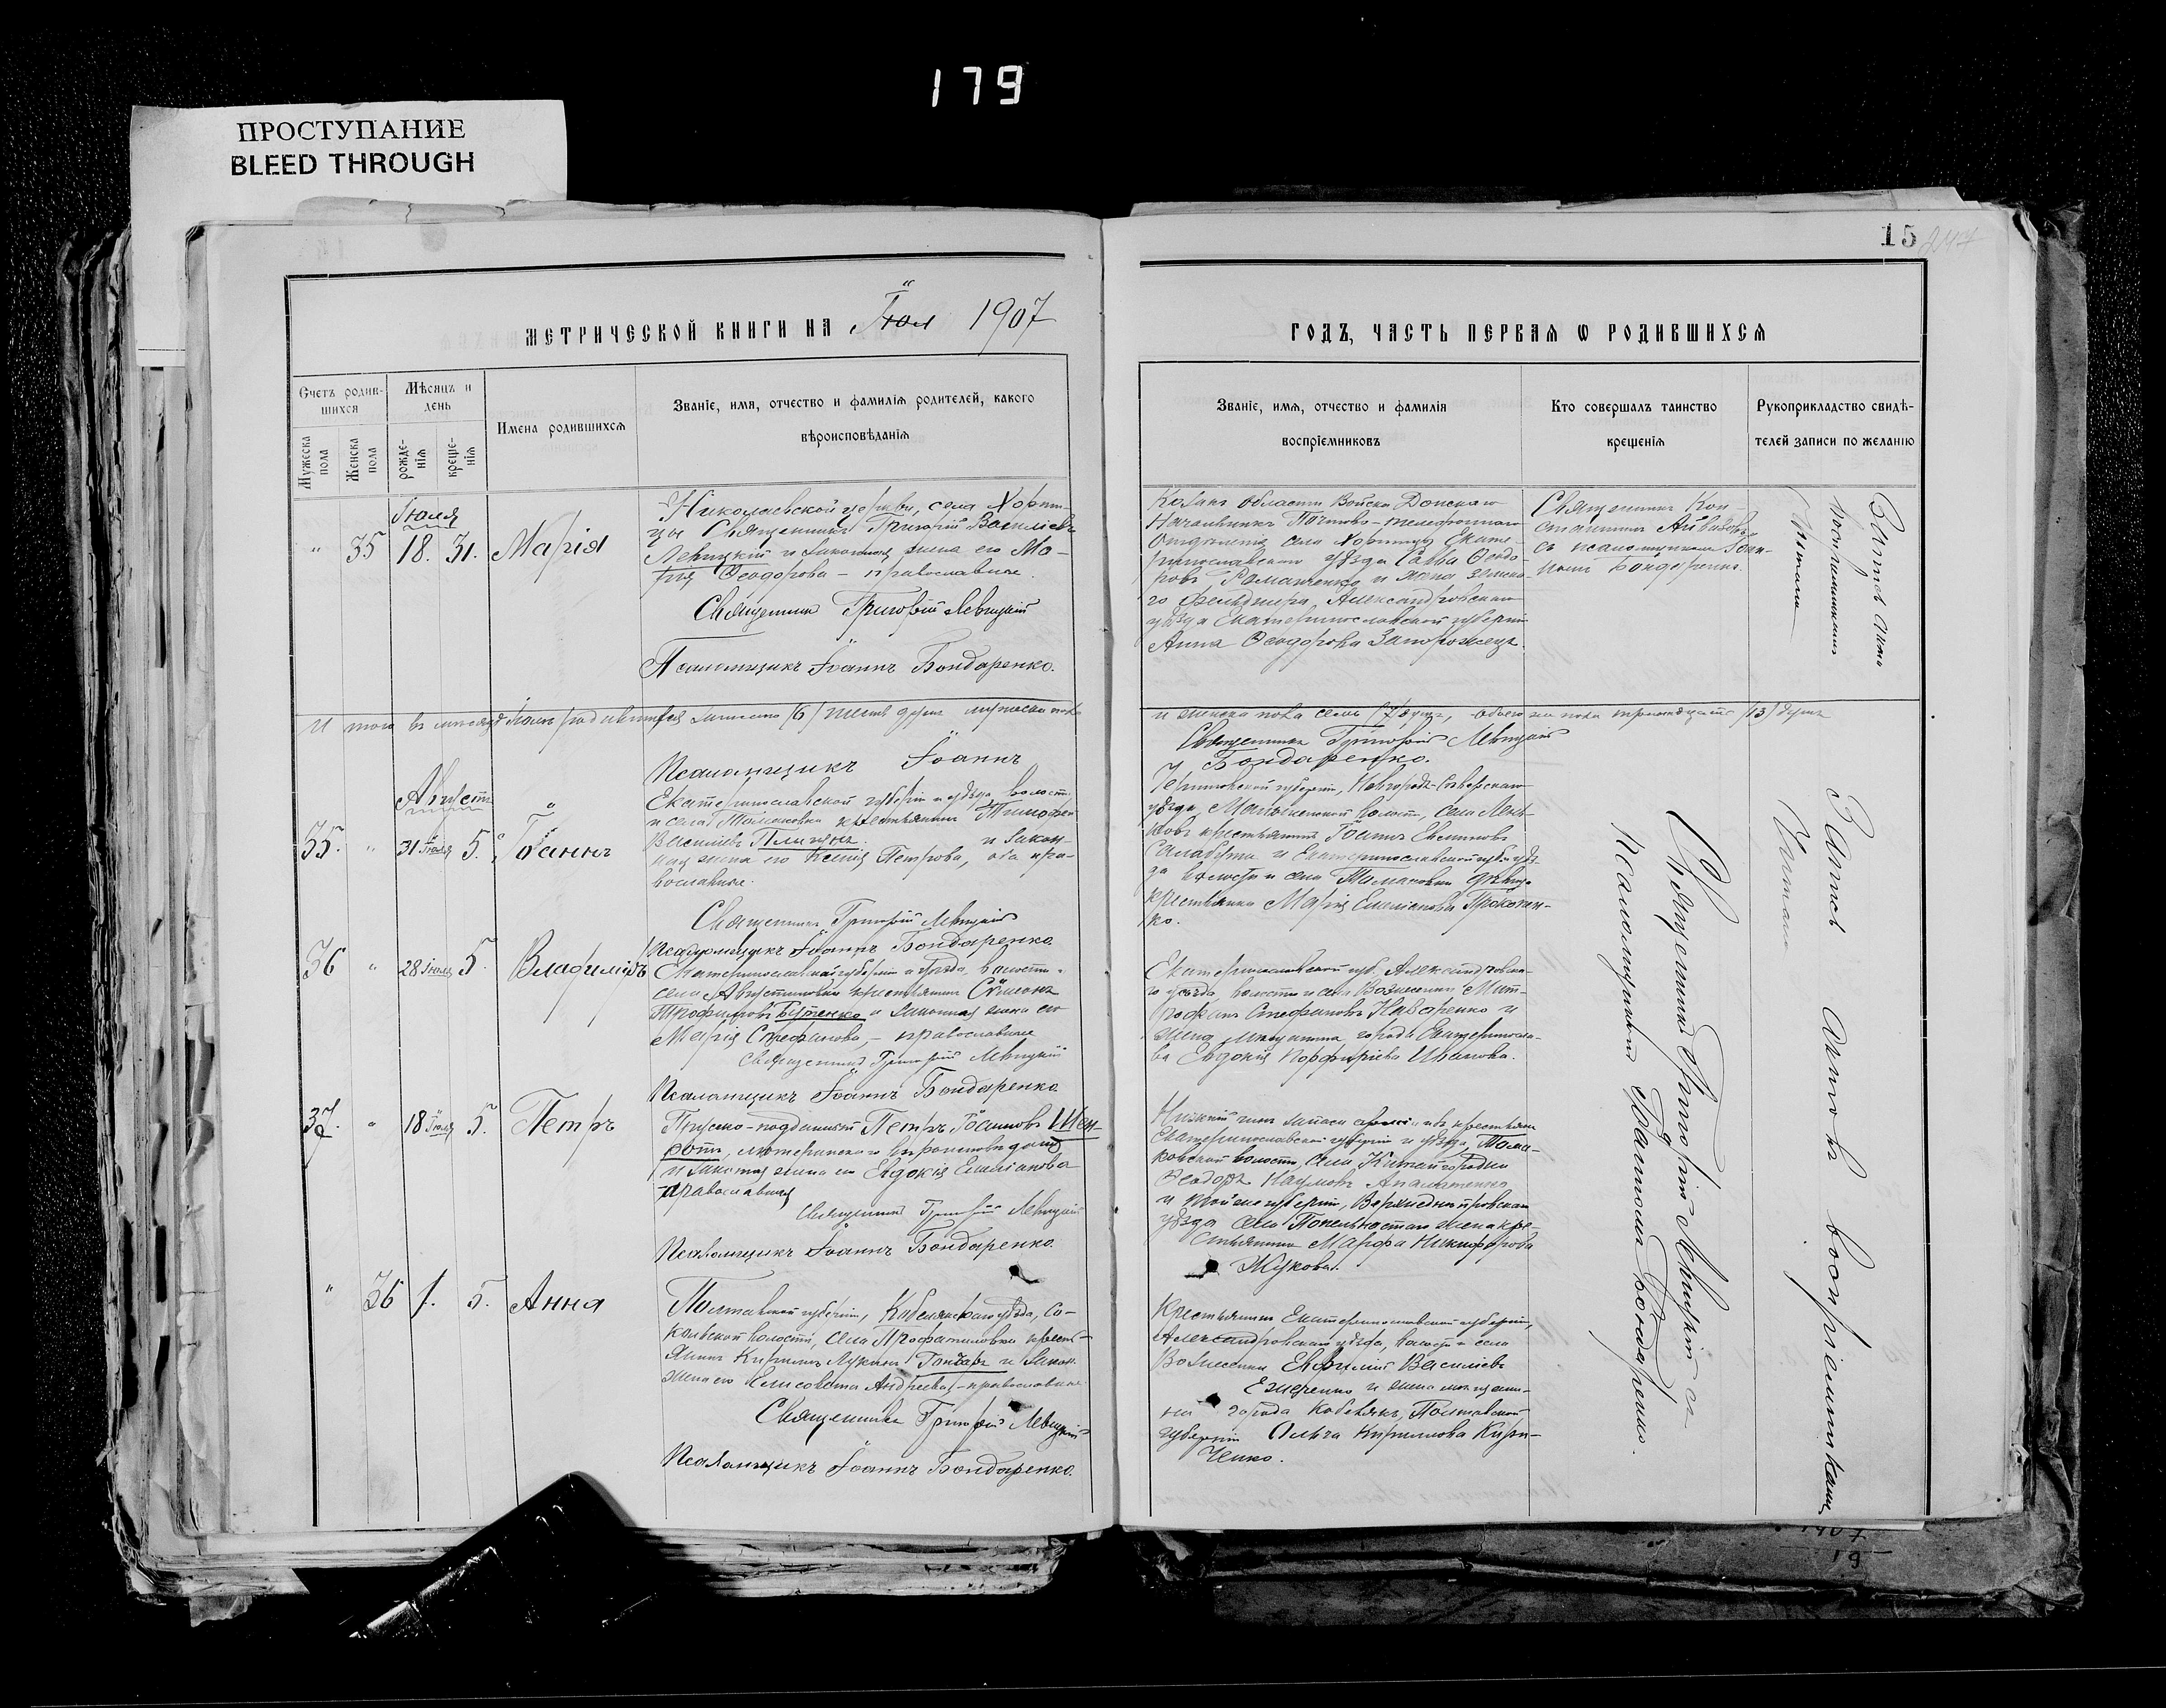 179
ПРОСТУПАНИЕ
BLEED THROUGH
15
247
МЕТРИЧЕСКОЙ КНИГИ НА 1907
ГОДЪ, ЧАСТЬ ПЕРВАЯ Ѡ РОДИВШИХСЯ
Счетъ родив-
шихся
Мужеска
пола
Женска
пола
Мѣсяцъ и
день
рожде-
нія
креще-
нія
Имена родившихся
Званіе, имя, отчество и фамилія родителей, какого
вѣроисповѣданія
Званіе, имя, отчество и фамилія
воспріемниковъ
Кто совершалъ таинство
крещенія
Рукоприкладство свидѣ-
телей записи по желанію
Іюля
„ 35 18. 31. Марія
Николаевской церкви, села Хорти-
цы Священникъ Григорій Васильевъ
Левицкій и законная жена его Ма-
рія Ѳеодорова - православные.
Священникъ Григорій Левицкій
Псаломщикъ Іоаннъ Бондаренко.
Области Войска Донскаго
Начальникъ Почтово-телефоннаго
Отдѣленія села Хортицы Екате-
ринославскаго уѣзда Савва Ѳеодо-
ровъ Романенко и жена земска-
го фельдшера, Александровскаго
уѣзда Екатеринославской губерніи
Анна Ѳеодорова Запорожецъ.
Священникъ Кон-
стантинъ
съ псаломщикомъ Іоан-
номъ Бондаренко.
И того въ мѣсяцѣ Іюлѣ родившихся записано (6) шесть душъ мужеска пола
и женска пола семь (7) душъ, обоего же пола тринадцать (13) душъ
Священникъ Григорій Левицкій
Псаломщикъ Іоаннъ
Бондаренко.
Августъ
35. „ 31 Іюля 5. Іоаннъ
Екатеринославской губерніи и уѣзда, волости
и села Томаковки крестьянинъ Тимофей
Васильевъ и закон-
ная жена его Ксенія Петрова, оба пра-
вославные.
Священникъ Григорій Левицкій
Псаломщикъ Іоаннъ Бондаренко
Черниговской губерніи, Новгородъ-Сѣверскаго
уѣзда, волости, села
крестьянинъ Іоаннъ
и Екатеринославской губ. уѣз-
да волости и села Томаковки дѣвица
крестьянка Марія Емельянова Прокопен-
ко.
36 „ 28 Іюля 5. Владиміръ
Екатеринославской губерніи и уѣзда, волости и
села Августиновки крестьянинъ Сѵмеонъ
Трофимовъ Бутенко и законная жена его
Марія Стефанова, - православные
Священникъ Григорій Левицкій
Псаломщикъ Іоаннъ Бондаренко
Екатеринославской губ. Александровска-
го уѣзда, волости и села Вознесенки Мит-
рофанъ Стефановъ Назаренко и
жена мѣщанина города Екатериносла-
ва Евдокія Порфиріева Иванова.
37. „ 18 Іюля 5. Петръ
Прусско-подданный Петръ Іоанновъ
лютеранскаго вѣроисповѣданія
и законная жена его Евдокія Емельянова
православная
Священникъ Григорій Левицкій
Псаломщикъ Іоаннъ Бондаренко.
Нижній чинъ запаса арміи изъ крестьянъ
Екатеринославской губерніи и уѣзда, Тома-
ковской волости, села Китайгородки
Ѳеодоръ Наумовъ
и той же губерніи, Верхнеднѣпровскаго
уѣзда села жена кре-
стьянина Марфа Никифорова
Жукова.
„ 36 1. 5. Анна
Полтавской губерніи, Кобелякскаго уѣзда, Со-
кольской волости, села крестья-
янинъ Кириллъ Лукинъ Гончаръ и закон.
жена его Елисавета Андреева, - православные.
Священникъ Григорій Левицкій
Псаломщикъ Іоаннъ Бондаренко.
Крестьянинъ Екатеринославской губерніи,
Александровскаго уѣзда, волости и села
Вознесенки Евфимій Васильевъ
и жена мѣщани-
на города Кобелякъ, Полтавской
губерніи Ольга Кириллова Кири-
ченко.
Запись акта
Читали
Запись актовъ воспріемниками
Читана
Священникъ Григорій Левицкій съ
псаломщикомъ Іоанномъ Бондаренко.
1907
19